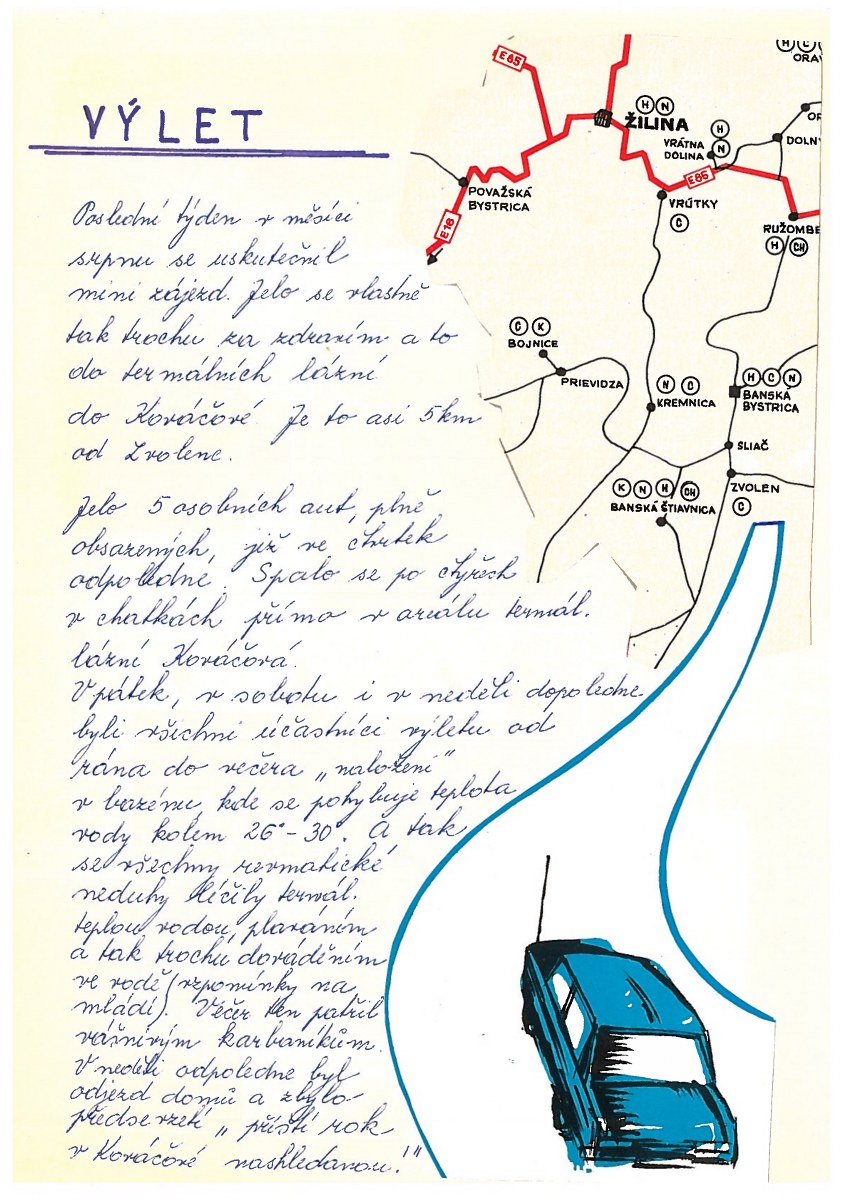 VÝLET
Poslední týden v měsíci
srpnu se uskutečnil
mini zájezd. Jelo se vlastně
tak trochu za zdravím a to
do termálních lázní
do Kováčové. Je to asi 5km
od Zvolene.
Jelo 5 osobních aut, plně
obsazených, již ve čtvrtek
odpoledne. Spalo se po čtyřech
v chatkách přímo v areálu termál.
lázní Kováčová.
V pátek, v sobotu i v neděli dopoledne
byli všichni účastníci výletu od
rána do večera „naložení"
v bazénu, kde se pohybuje teplota
vody kolem 26°-30°. A tak
se všechny revmatické
neduhy léčily termál.
teplou vodou, plaváním
a tak trochu dováděním
ve vodě (vzpomínky na
mládí). Večer ten patřil
vášnivým karbaníkům.
V neděli odpoledne byl
odjezd domů a zbylo
předsevzetí „ příští rok
v Kováčové nashledanou!"
E85
H C
ORA
H N
ŽILINA
VRÁTNA
DOLINA
H
N
DOLN
POVAŽSKÁ
BYSTRICA
E16
E85
VRÚTKY
C
RUŽOMBE
H CH
C K
BOJNICE
PRIEVIDZA
N C
KREMNICA
H C N
BANSKÁ
BYSTRICA
SLIAČ
K N H CH
BANSKÁ ŠTIAVNICA
ZVOLEN
C